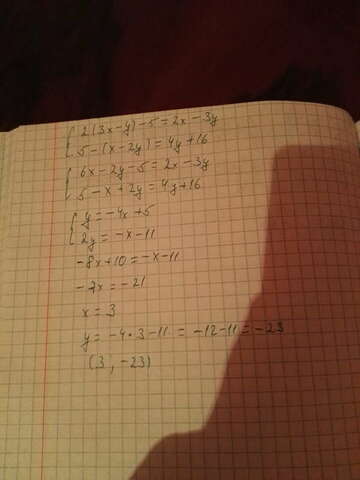 2(3x-y)-5=2x-3y
5-(x-2y)=4y+16
6x-2y-5=2x-3y
5-x+2y=4y+16
y=-4x+5
2y=-x-11
-8x+10=-x-11
-7x=-21
x=3
y=-4·3-11=-12-11=-23
(3, -23)